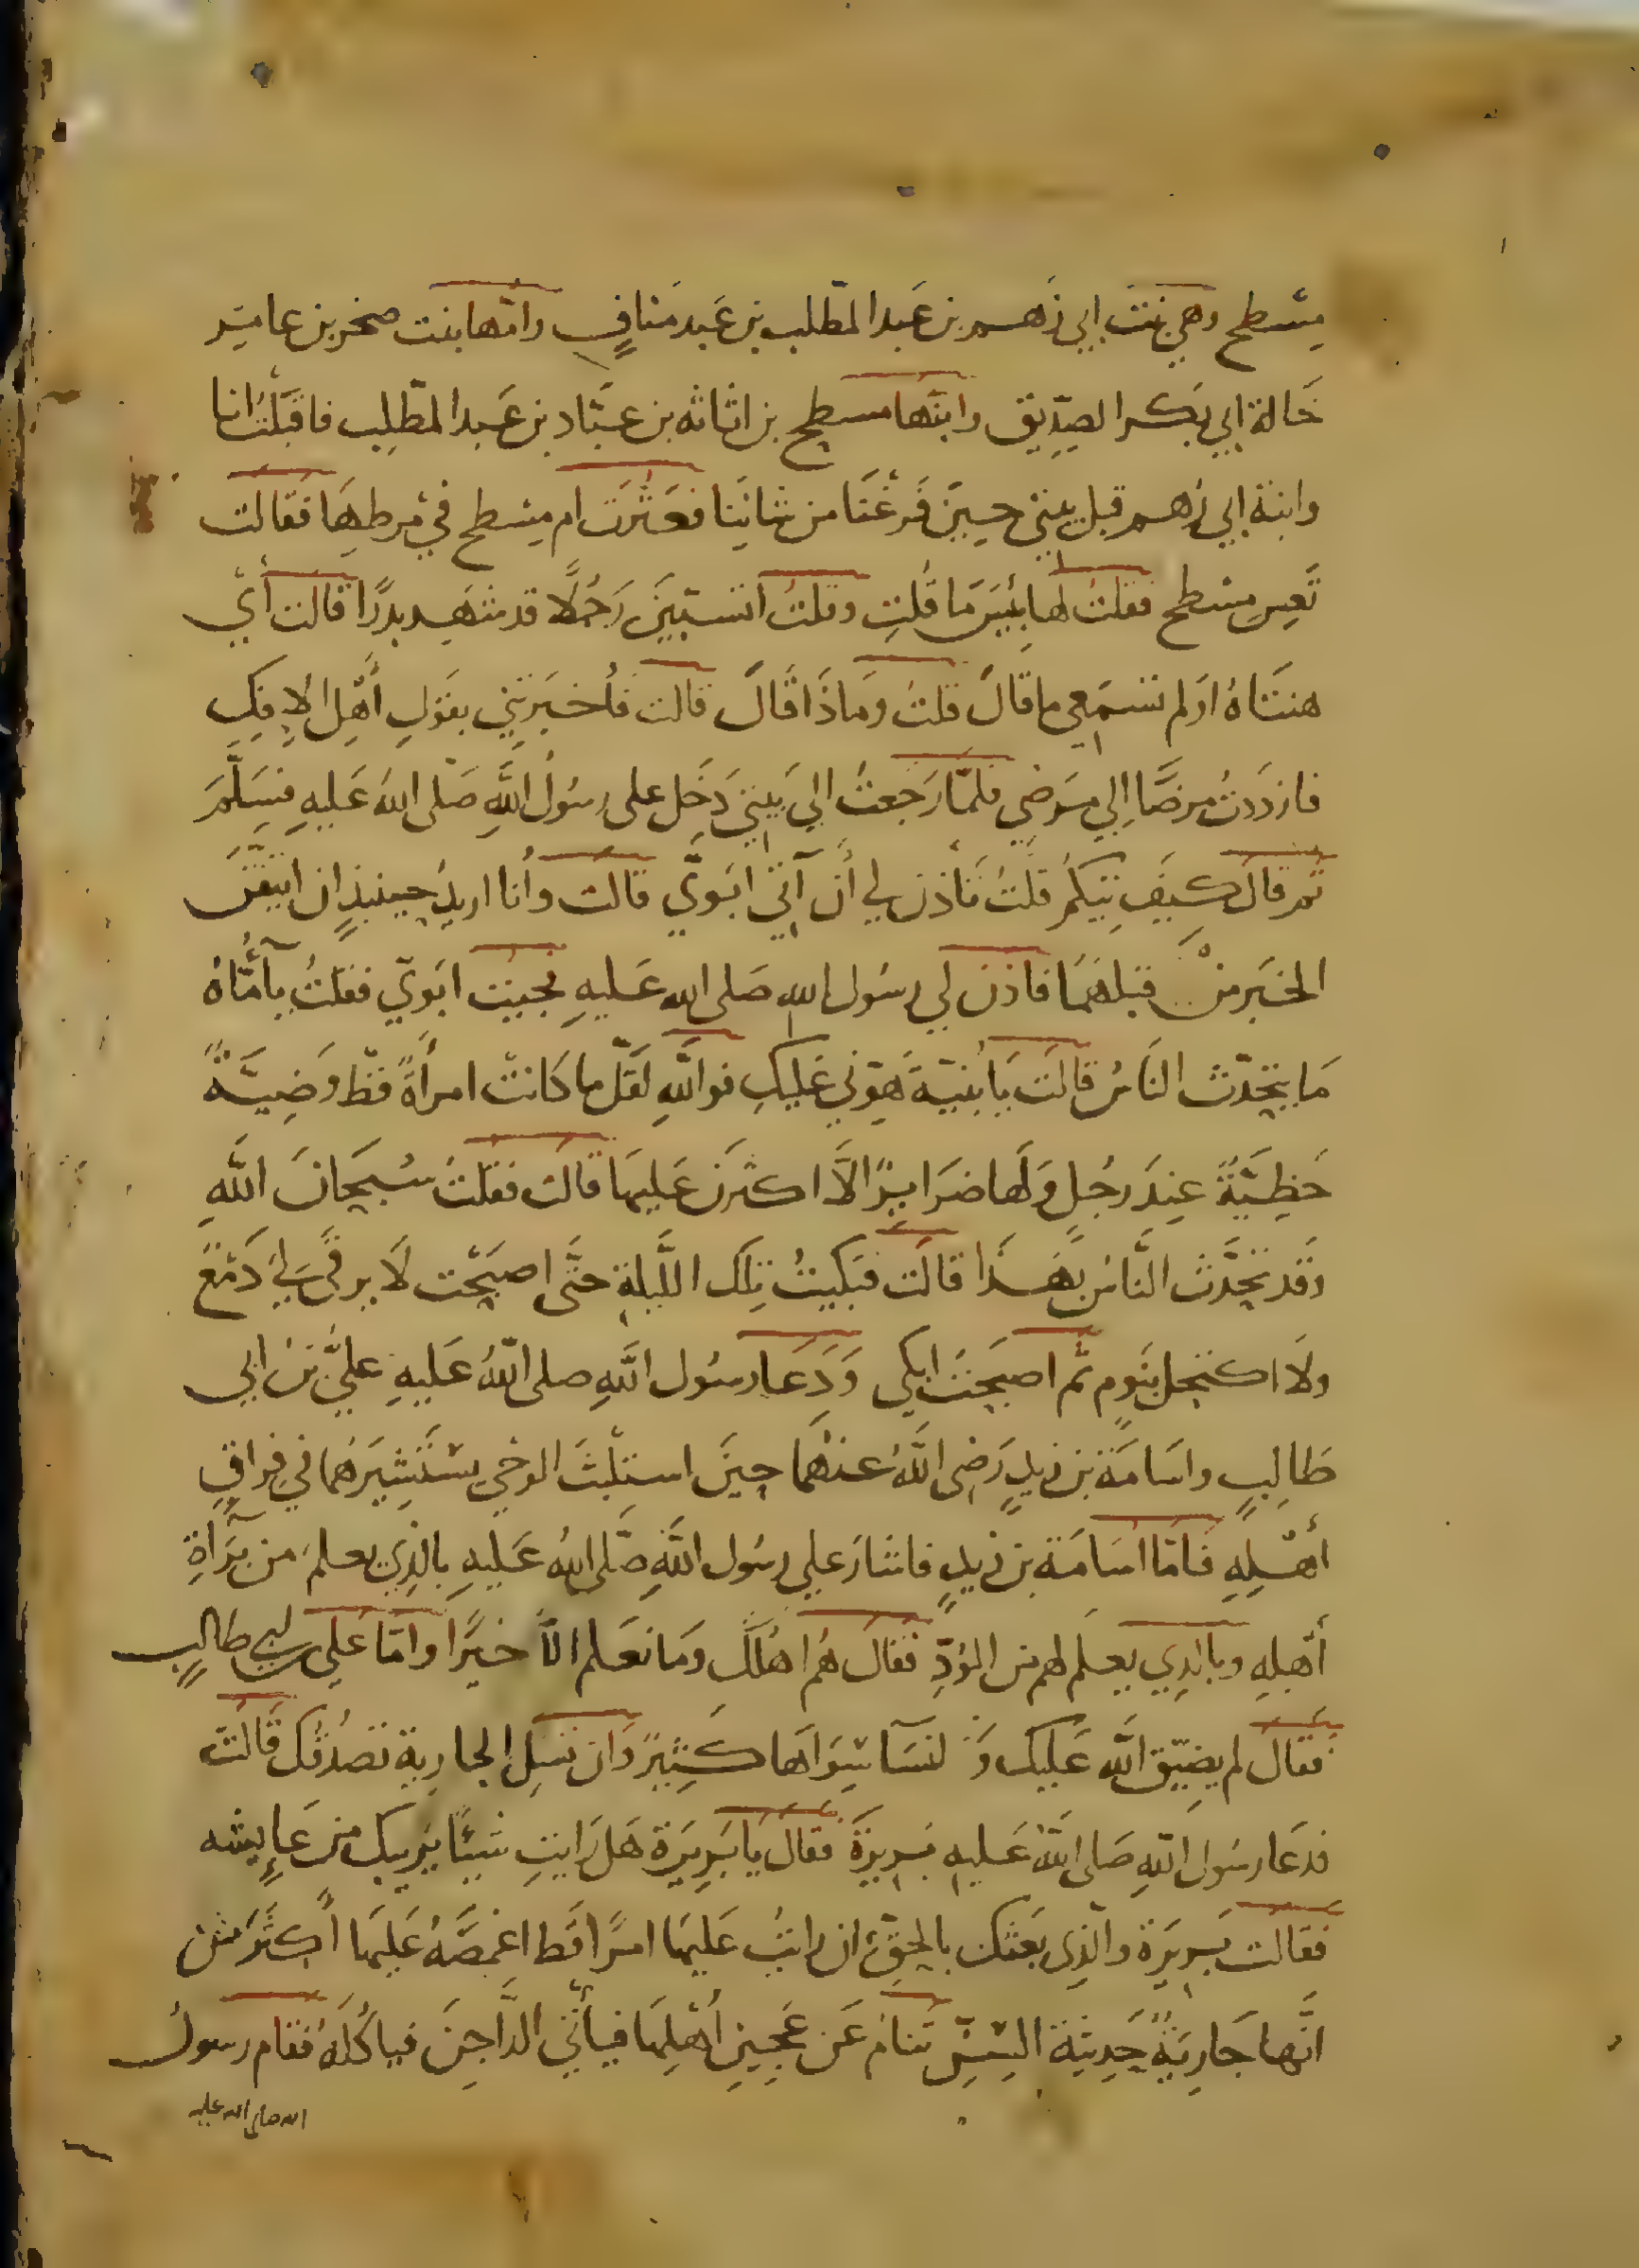 مِسْطح وهي بنت ابي رُهم بن عَبد المطّلب بن عَبد مَنافٍ وامّها بنت صخر بن عامِر
خَالة ابي بَكر الصِدّيق وابنها مسطح بن اثاثه بن عبّاد بن عَبد المطّلِب فاقبَلْتُ انا
وابنة ابي رُهم قبل بيتي حِينَ فَرغْنَا من شانِنا فعَثَرَت ام مِسْطح في مْرطِهَا فَقالت
تَعِس مِسْطح فقلتُ لها بِئسَ مَا قُلتِ وقلتُ اتسبّينَ رَجُلًا قد شَهِد بدرًا قالت أي
هنتَاهُ اولم تسمَعِي ما قالَ قلتُ ومَاذَا قَالَ قالت فأخبَرتني بقَولِ أهْلِ الاِفكِ
فازدَدتُ مرضًا اِلي مَرَضي فلمّا رَجَعتُ الي بيتي دَخَل على رسُولُ اللَّهِ صَلّى اللهُ عَليهِ فسَلَّمَ
ثم قال كيفَ تيكمُ قلتُ تَأذن لي أن آتيَ ابَويّ قالت وأنا اريدُ حينيذٍ ان اتيقّنَ
الخبَر منْ قبلهمَا فاذن لي رسُول الله صَلى الله عَليهِ فجيت ابَويّ فقلتُ يآمّتاهُ
مَا يتحدّث النّاسُ قالَت يَا بُنيّةَ هَوّني عَليكِ فوَاللَّهِ لقَلّ ما كَانتْ امرأةً قطّ وَضِيئةً
حَظِيَّةً عِندَ رجُلٍ وَلَها ضرَايرًا الَّا اكثَرن عَليهَا قالت فقلتُ سُبحَانَ اللَّهِ
وَقَد تحَدَّث النَّاسُ بهَذَا قالَت فبَكيتُ تِلكَ اللَّيلة حتَّى اصبَحْت لَا يرقَى لِي دَمْعٌ
ولَا اكتحل بنَومٍ ثم اصبَحتُ ابكي وَدَعَا رسُول اللَّهِ صلى اللّهُ عَليهِ عليَّ بنَ ابي
طَالِبٍ واسَامَة بن زيدٍ رَضِى اللَّهُ عنهُمَا حِينَ استلبثَ الوحْي يسْتَشِيرَهُما في فِرَاقِ
أهْلِهِ فَامّا اسَامَة بن زيدٍ فاشارَ علي رسُول اللَّهِ صَلَّى اللهُ عَليهِ بالذِي يعلمُ من بَرَآةِ
أهْلِهِ وبالذِي يعلَم لهم من الوُدِّ فقَالَ هُم اهْلَكَ ومَا نعَلم الاَّ خيرًا وامّا علي ابن ابي طالِبٍ
فقالَ لم يضيّق اللَّه عَليك وَ لنسَآ سِوَاهَا كَثِيرٌ وَان تسَلِ الجارِية تصْدُقكَ قَالت
فدعَا رسُول اللهِ صَلى اللَّهُ عَليهِ بَرِيرَةَ فقالَ يَا بَرِيرَة هَل رَايتِ شَيئًا يَرِيبك من عَائِشه
فقَالت بَرِيرَة والّذِى بَعثكَ بالحقّ ان رايتُ عَليهَا امرًا قَط اغْمِصُهُ عَليهَا أكثَرَ من
انَّها جَارِيَةٌ حَدِيثةُ السِّنِّ تَنامُ عَن عَجِينِ أهْلِهَا فيأتي الدَّاجِنَ فياكُلَهُ فقام رسولُ
الله صلى الله عليه